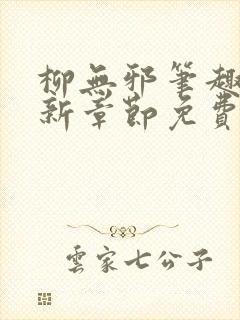 柳無邪筆趣
新章節免費
雲家七公子